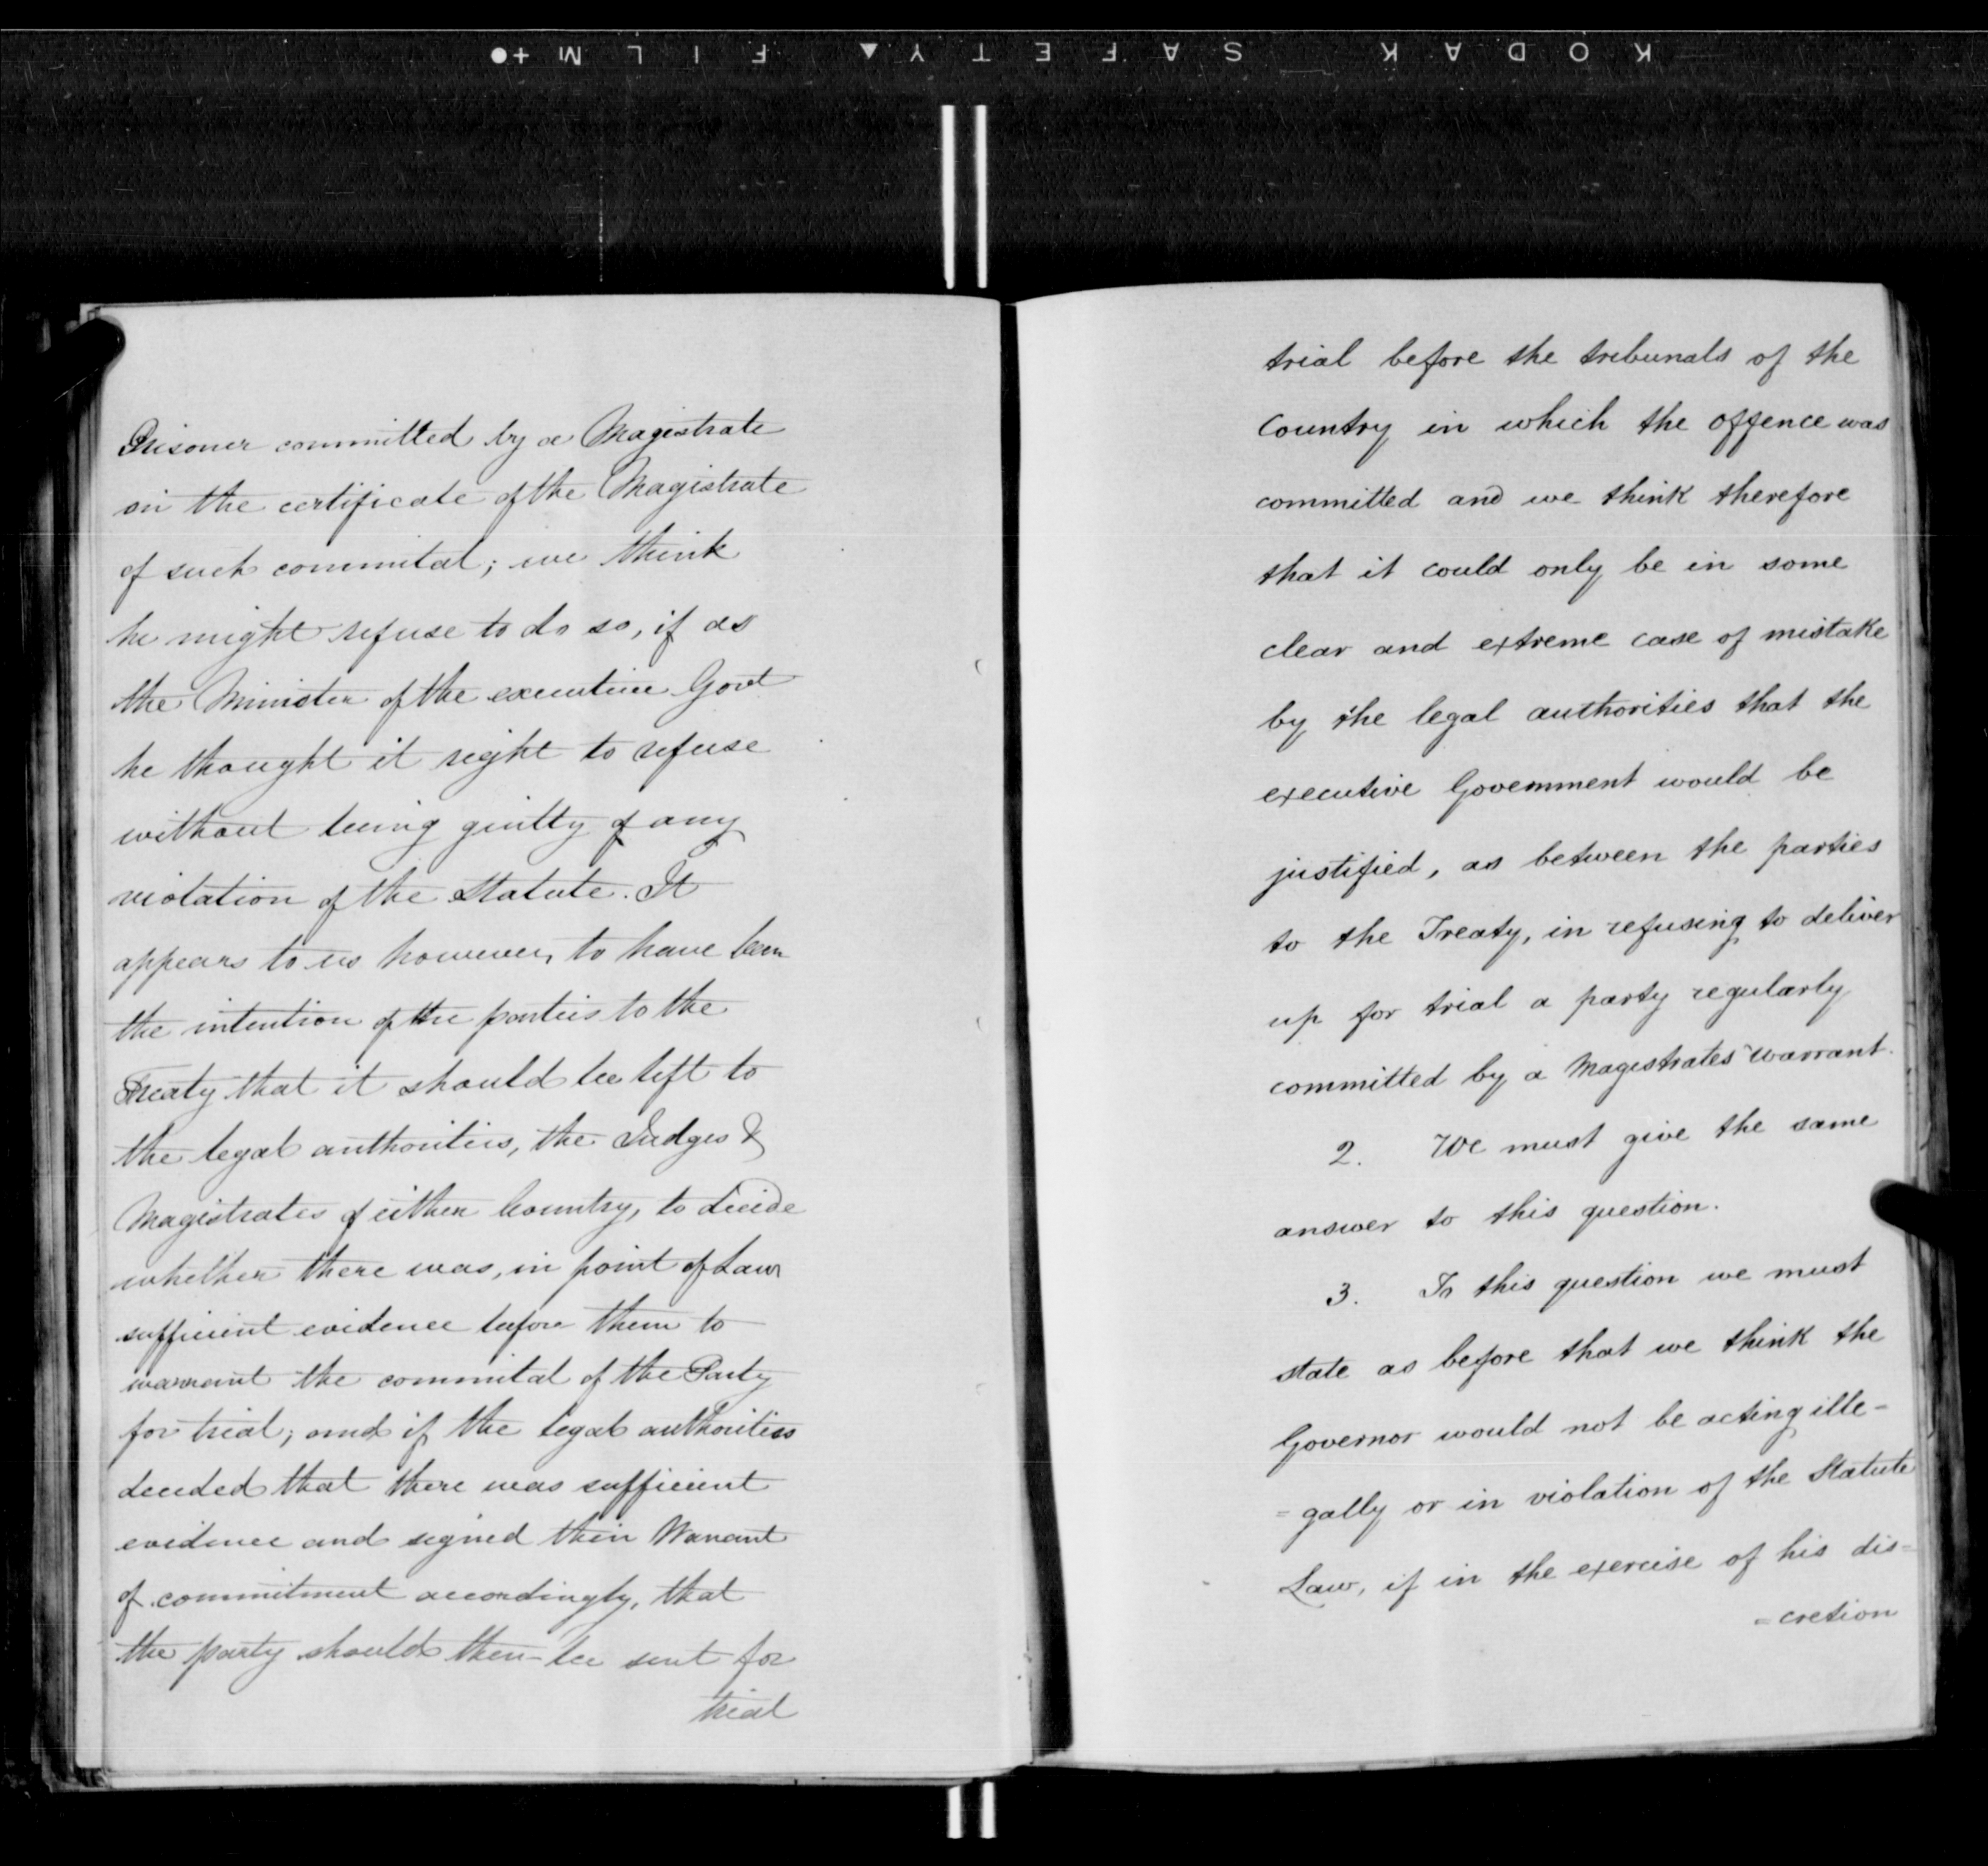 KODAK SAFETY▲ FILM+●
Prisoner committed by a Magistrate
on the certificate of the Magistrate
of such commital; we think
he might refuse to do so, if as
the Minister of the executive Govt
he thought it right to refuse
without being guilty of any
violation of the Statute. It
appears to us however, to have been
the intention of the parties to the
Treaty that it should be left to
the legal authorities, the Judges &
Magistrates of either Country, to decide
whether there was, in point of Law
sufficient evidence before them to
warrant the commital of the Party
for trial; and if the legal authorities
decided that there was sufficient
evidence and signed their Warrant
of commitment accordingly, that
the party should then be sent for
trial
trial before the tribunals of the
Country in which the offence was
committed and we think therefore
that it could only be in some
clear and extreme case of mistake
by the legal authorities that the
executive Government would be
justified, as between the parties
to the Treaty, in refusing to deliver
up for trial a party regularly
committed by a Magistrates warrant.
2. We must give the same
answer to this question.
3. To this question we must
state as before that we think the
Governor would not be acting ille-
=gally or in violation of the Statute
Law, if in the exercise of his dis=
=cretion